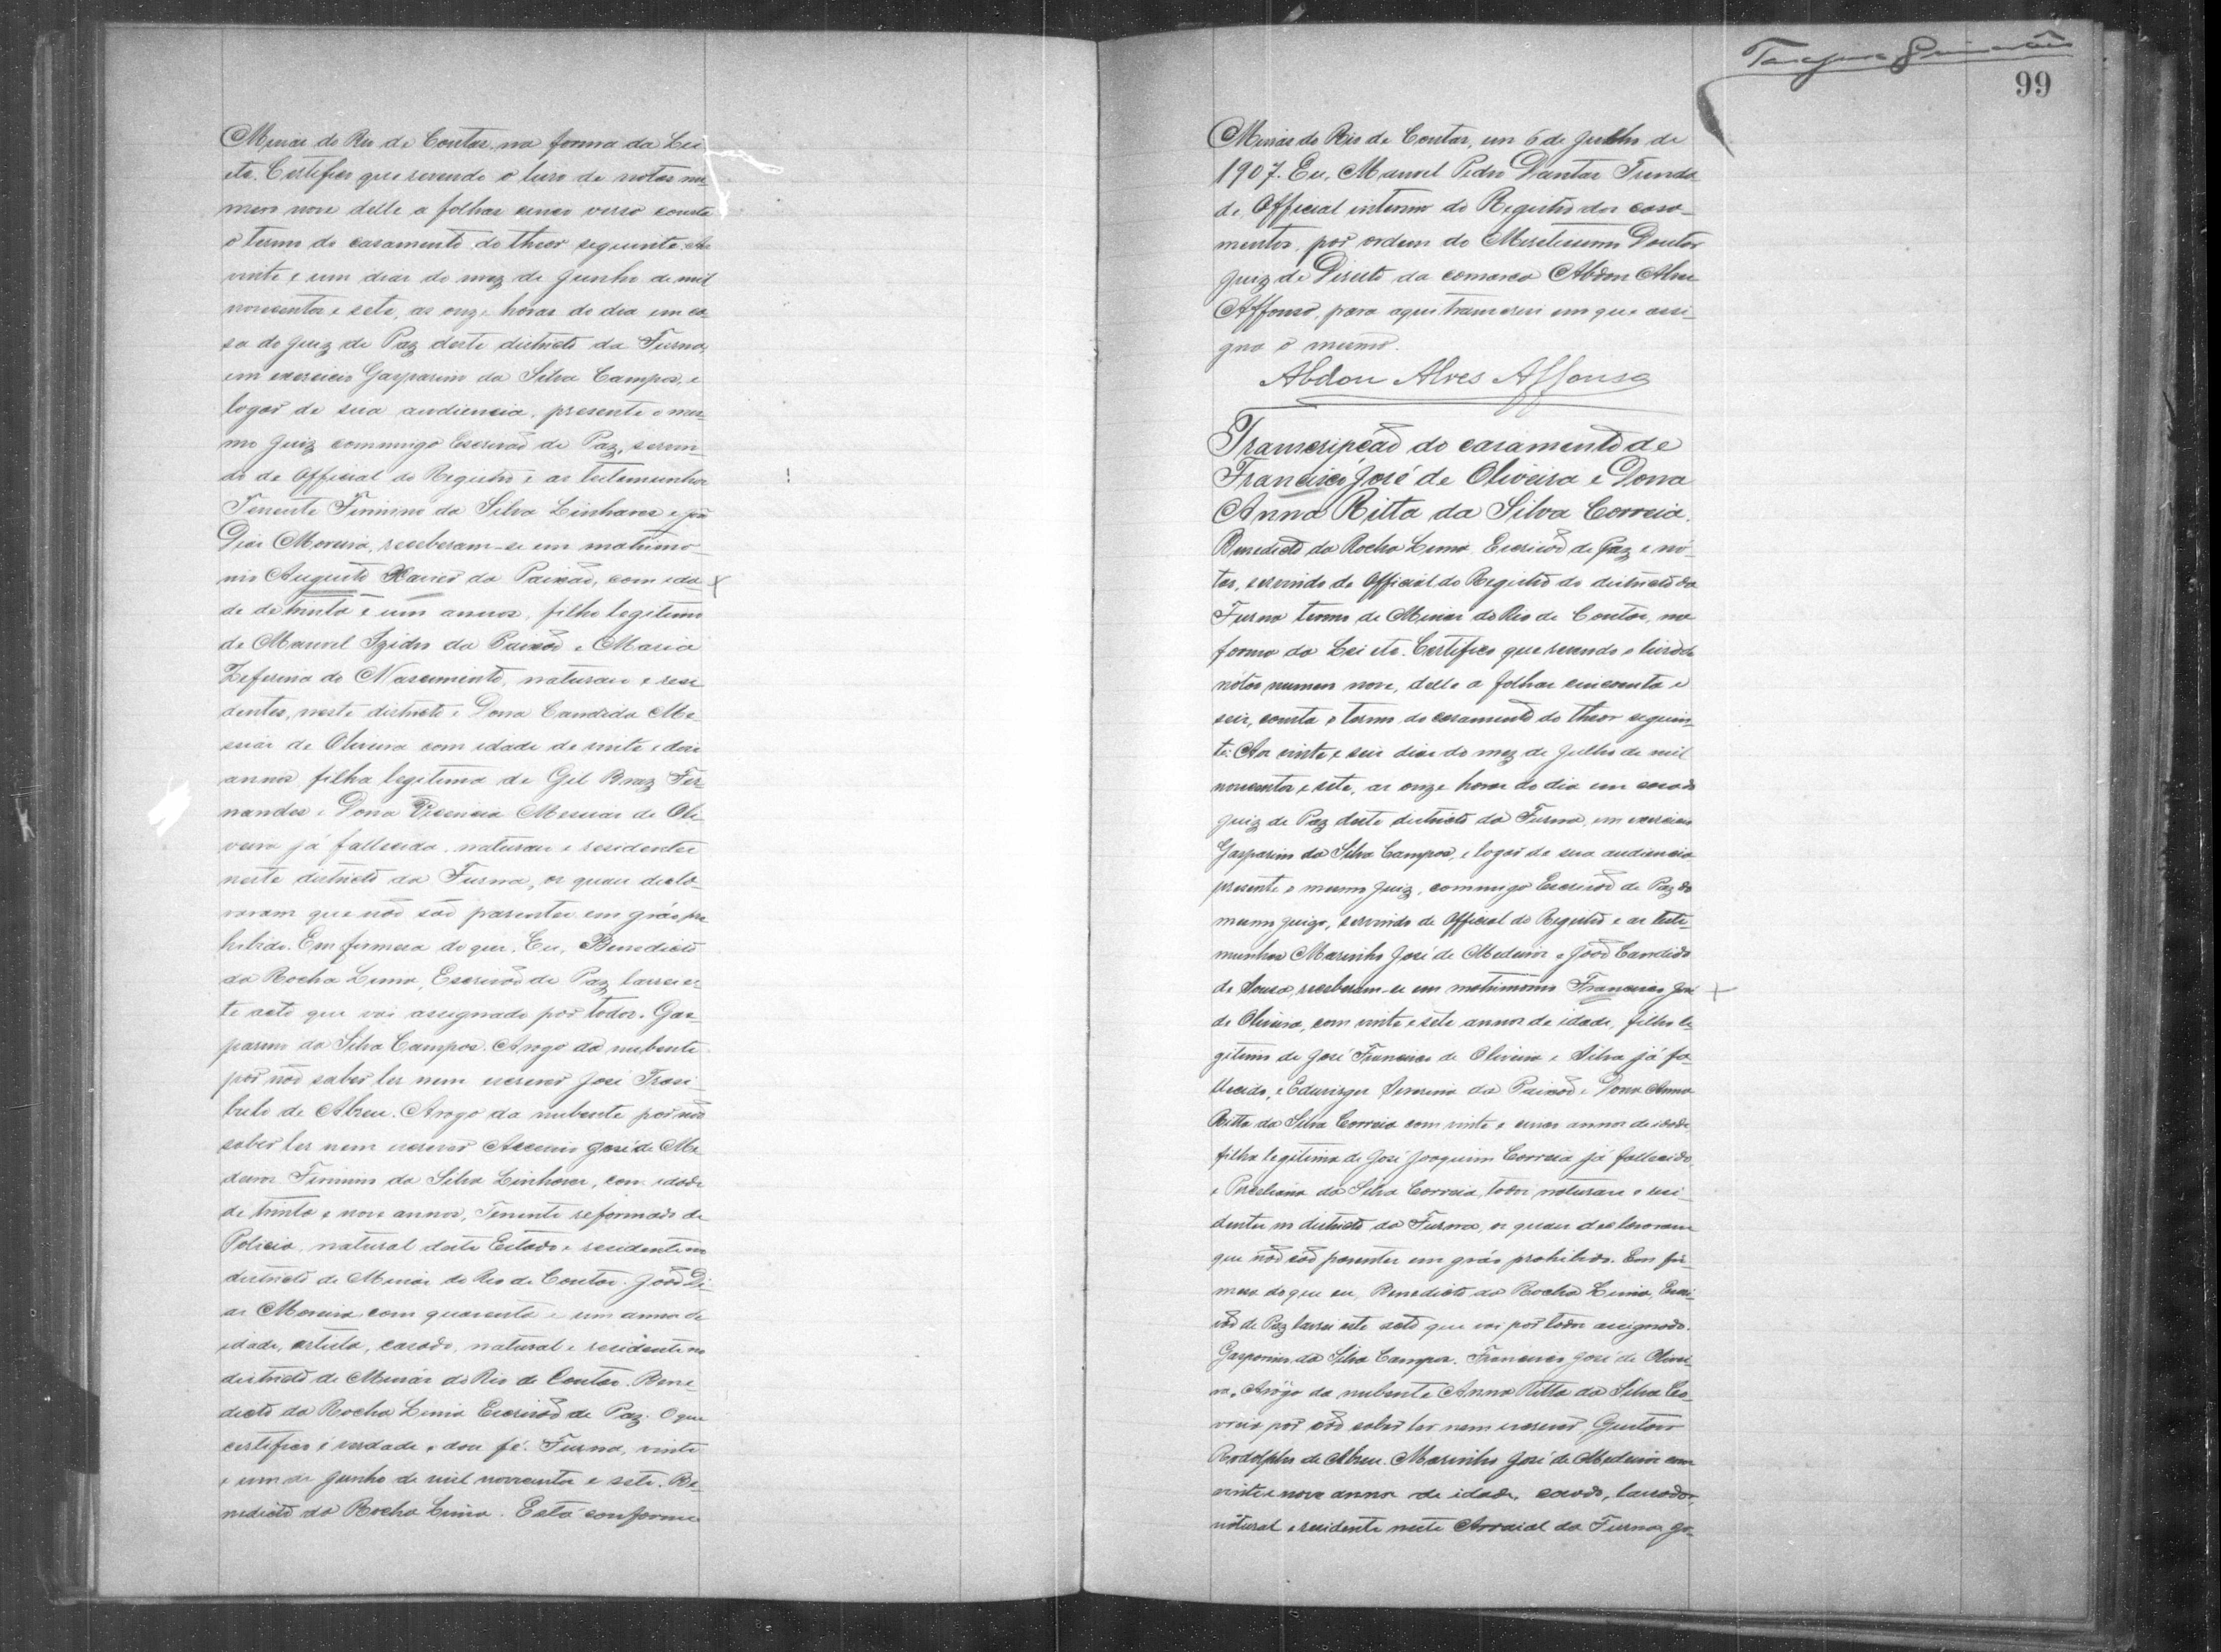 Minas do Rio de Contas, na forma da Lei
etc. Certifico que revendo o livro de notas nu-
mero nove delle a folhas cinco verso consta
o termo do casamento do theor seguinte: Ao
vinte e um dias do mez de Junho de mil
novecentos e sete, as onze horas do dia em ca-
sa do Juiz de Paz deste districto da Furna,
em exercicio Gasparino da Silva Campos, e
logar de sua audiencia, presente o mes-
mo Juiz commigo Escrivaõ de Paz, servin-
do de Official do Registro e as testemunhas
Tenente Firmino da Silva Linhares e Joaõ
Dias Moreira, receberam-se em matrimo-
nio Augusto Xavier da Paixaõ, com ida-
de de trinta e um annos, filho legitimo
de Manoel Izidro da Paixaõ e Maria
Zeferina do Nascimento, naturaes e resi-
dentes, neste districto e Dona Candida Me-
ssias de Oliveira com idade de vinte e dois
annos filha legitima de Gil Braz Fer-
nandes e Dona Vicencia Messias de Oli-
veira já fallecida, naturaes e residentes
neste districto da Furna, os quaes decla-
raram que naõ saõ parentes em gráo pro
hibido. Em firmesa do que, Eu, Benedicto
da Rocha Lima, Escrivaõ de Paz lavrei es-
te acto que vai assignado por todos. Gas-
parino da Silva Campos. Arogo do nubente
por naõ saber ler nem escrever José Trasi-
bulo de Abreu. Arogo da nubente por naõ
saber ler nem escrever Ascenio José de Me-
deiros Firmino da Silva Linhares, com idade
de trinta e nove annos, Tenente reformado de
Policia, natural deste Estado e residente no
districto de Minas do Rio de Contas. Joaõ Di-
as Moreira com quarenta e um annos de
idade, artista, casado, natural e residente no
districto de Minas do Rio de Contas. Bene-
dicto da Rocha Lima Escrivaõ de Paz. O que
certifico é verdade e dou fé. Furna, vinte
e um de Junho de mil novecentos e sete. Be-
nedicto da Rocha Lima. Está conforme
99
Minas do Rio de Contas, em 6 de Julho de
1907. Eu, Manoel Pedro Dantas Trinda-
de Official interino do Registro dos casa-
mentos, por ordem do Meritissimo Doutor
Juiz de Direito da comarca Abdon Alves
Affonso, para aqui transcrevi em que assi-
gna o mesmo.
Abdon Alves Affonso
Transcripçaõ do casamento de
Francisco José de Oliveira e Dona
Anna Ritta da Silva Correia.
Benedicto da Rocha Lima Escrivaõ de Paz e no-
tas, servindo de Official do Registro do districto da
Furna termo de Minas do Rio de Contas, na
forma da Lei etc. Certifico que revendo o livro de
notas numero nove, delle a folhas cincoenta e
seis, consta o termo do casamento do theor seguin-
te: Aos vinte e seis dias do mez de Julho de mil
novecentos e sete, as onze horas do dia em casa do
Juiz de Paz deste districto da Furna, em exercicio
Gasparino da Silva Campos, e logar de sua audiencia
presente o mesmo Juiz, commigo Escrivaõ de Paz do
mesmo Juizo, servindo de Official do Registro e as teste-
munhas Marinho José de Medeiros e Joaõ Candido
de Sousa, receberam-se em matrimonio Francisco José
de Oliveira, com vinte e sete annos de idade, filho le-
gitimo de José Francisco de Oliveira e Silva já fa-
llecido, e Eduviges da Paixaõ e Dona Anna
Ritta da Silva Correia com vinte e cinco annos de idade,
filha legitima de José Joaquim Correia já fallecido,
e da Silva Correia, todos naturaes e resi-
dentes no districto da Furna, os quaes declararam
que naõ saõ parentes em gráo prohibido. Em fir-
mesa do que eu, Benedicto da Rocha Lima, Escri-
vaõ de Paz lavrei este acto que vai por todos assignado.
Gasparino da Silva Campos. Francisco José de Olivei-
ra. Arôgo da nubente Anna Ritta da Silva Co-
rreia por naõ saber ler nem escrever, Gustavo
Rodolpho de Abreu. Marinho José de Medeiros com
vinte e nove annos de idade, casado, lavrador,
natural e residente neste Arraial da Furna. Jo-